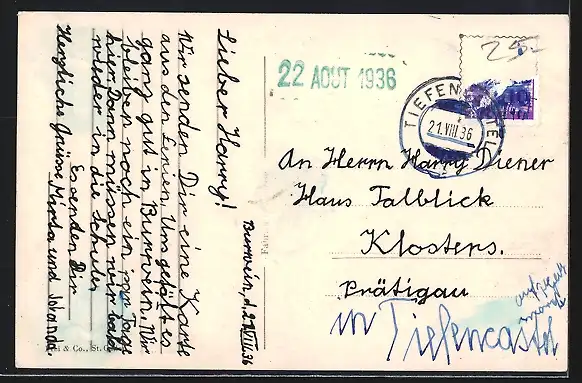 Burwein, d. 21.VIII 36
Lieber Harry!
Wir senden Dir eine Karte
aus den Ferien. Uns gefällt es
ganz gut in Burwein. Wir
bleiben noch ein paar Tage
hier. Dann müssen wir bald
wieder in die Schule.
Es senden Dir
Herzliche Grüsse Mirta und
& Co., St. G
22 AOUT 1936
25.-
TIEFEN TEL
21.VIII 36
An Herrn Harry Diener
Haus Talblick
Klosters.
Prätigau
in Tiefencastel